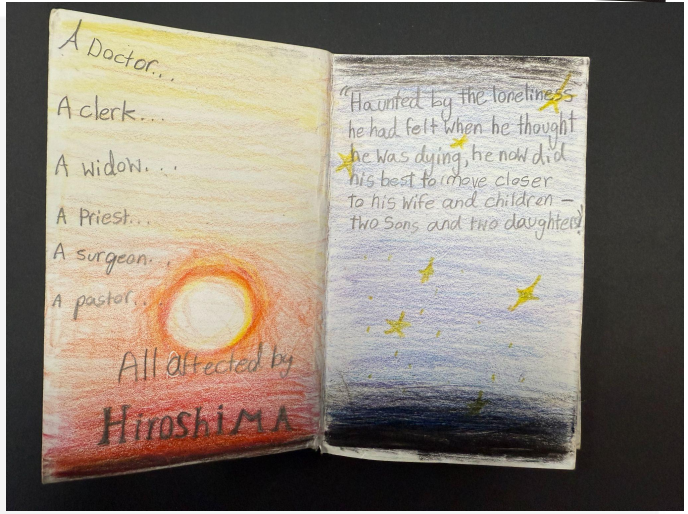 A Doctor...
A clerk...
A widow...
A Priest...
A surgeon...
A pastor...
All affected by
HiroshiMA
"Haunted by the loneliness
he had felt when he thought
he was dying, he now did
his best to move closer
to his wife and children —
two sons and two daughters"